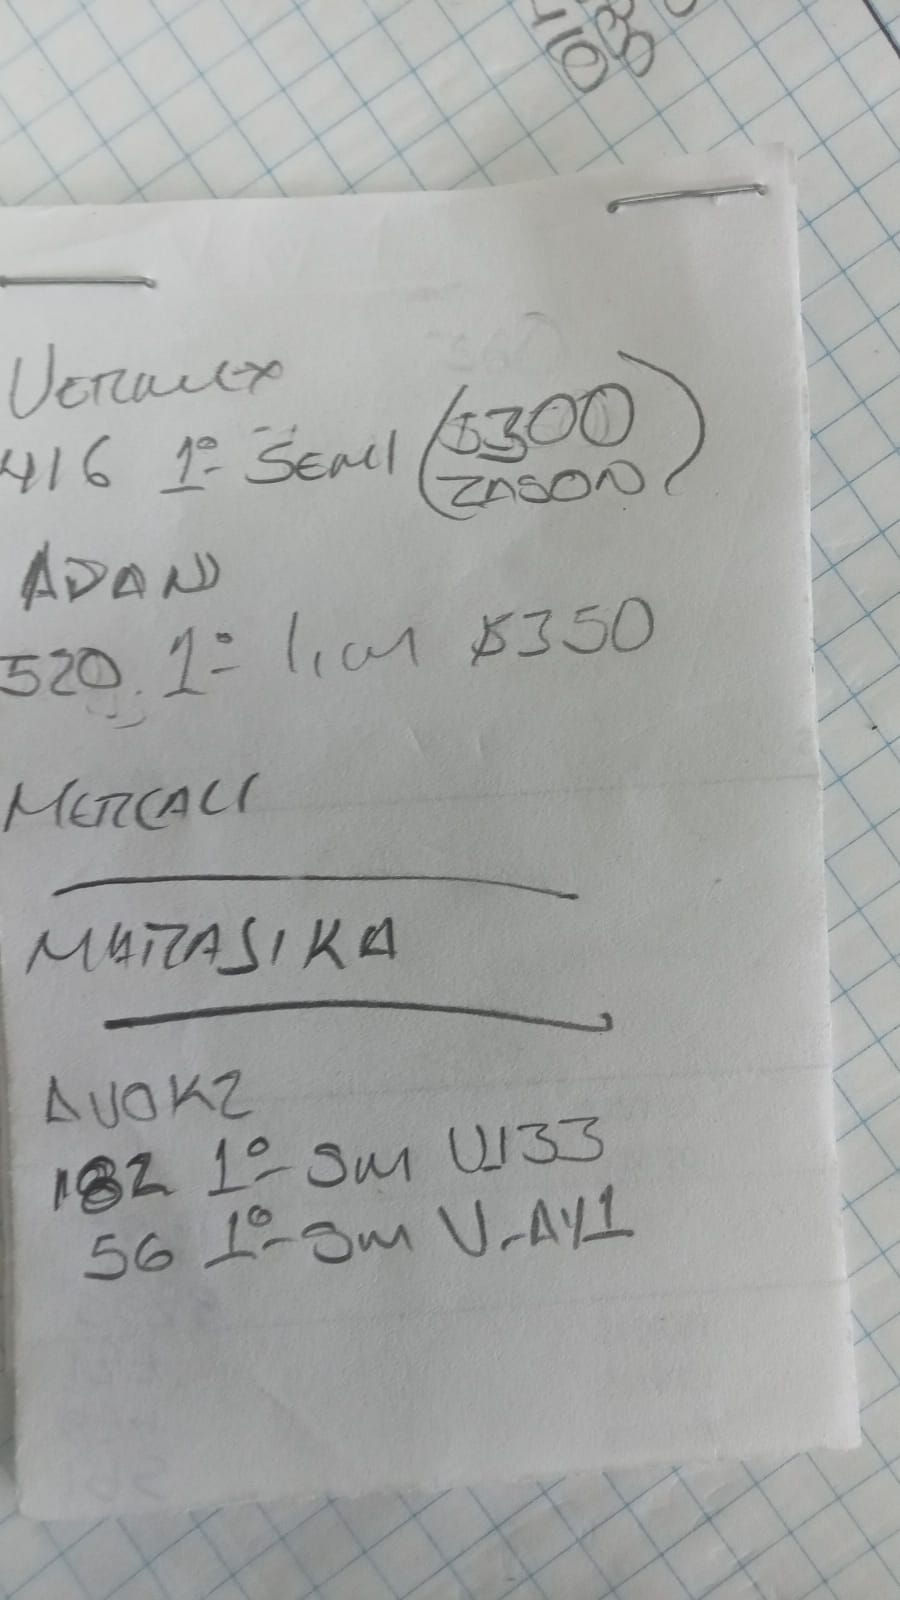 VERAMEX
416 1º SEMI ($300
ZASON)
ADAN
520. 1º $350
MERCALI
MARASIKA
AVOKZ
182 1º Sm U133
56 1º Sm V-AY1